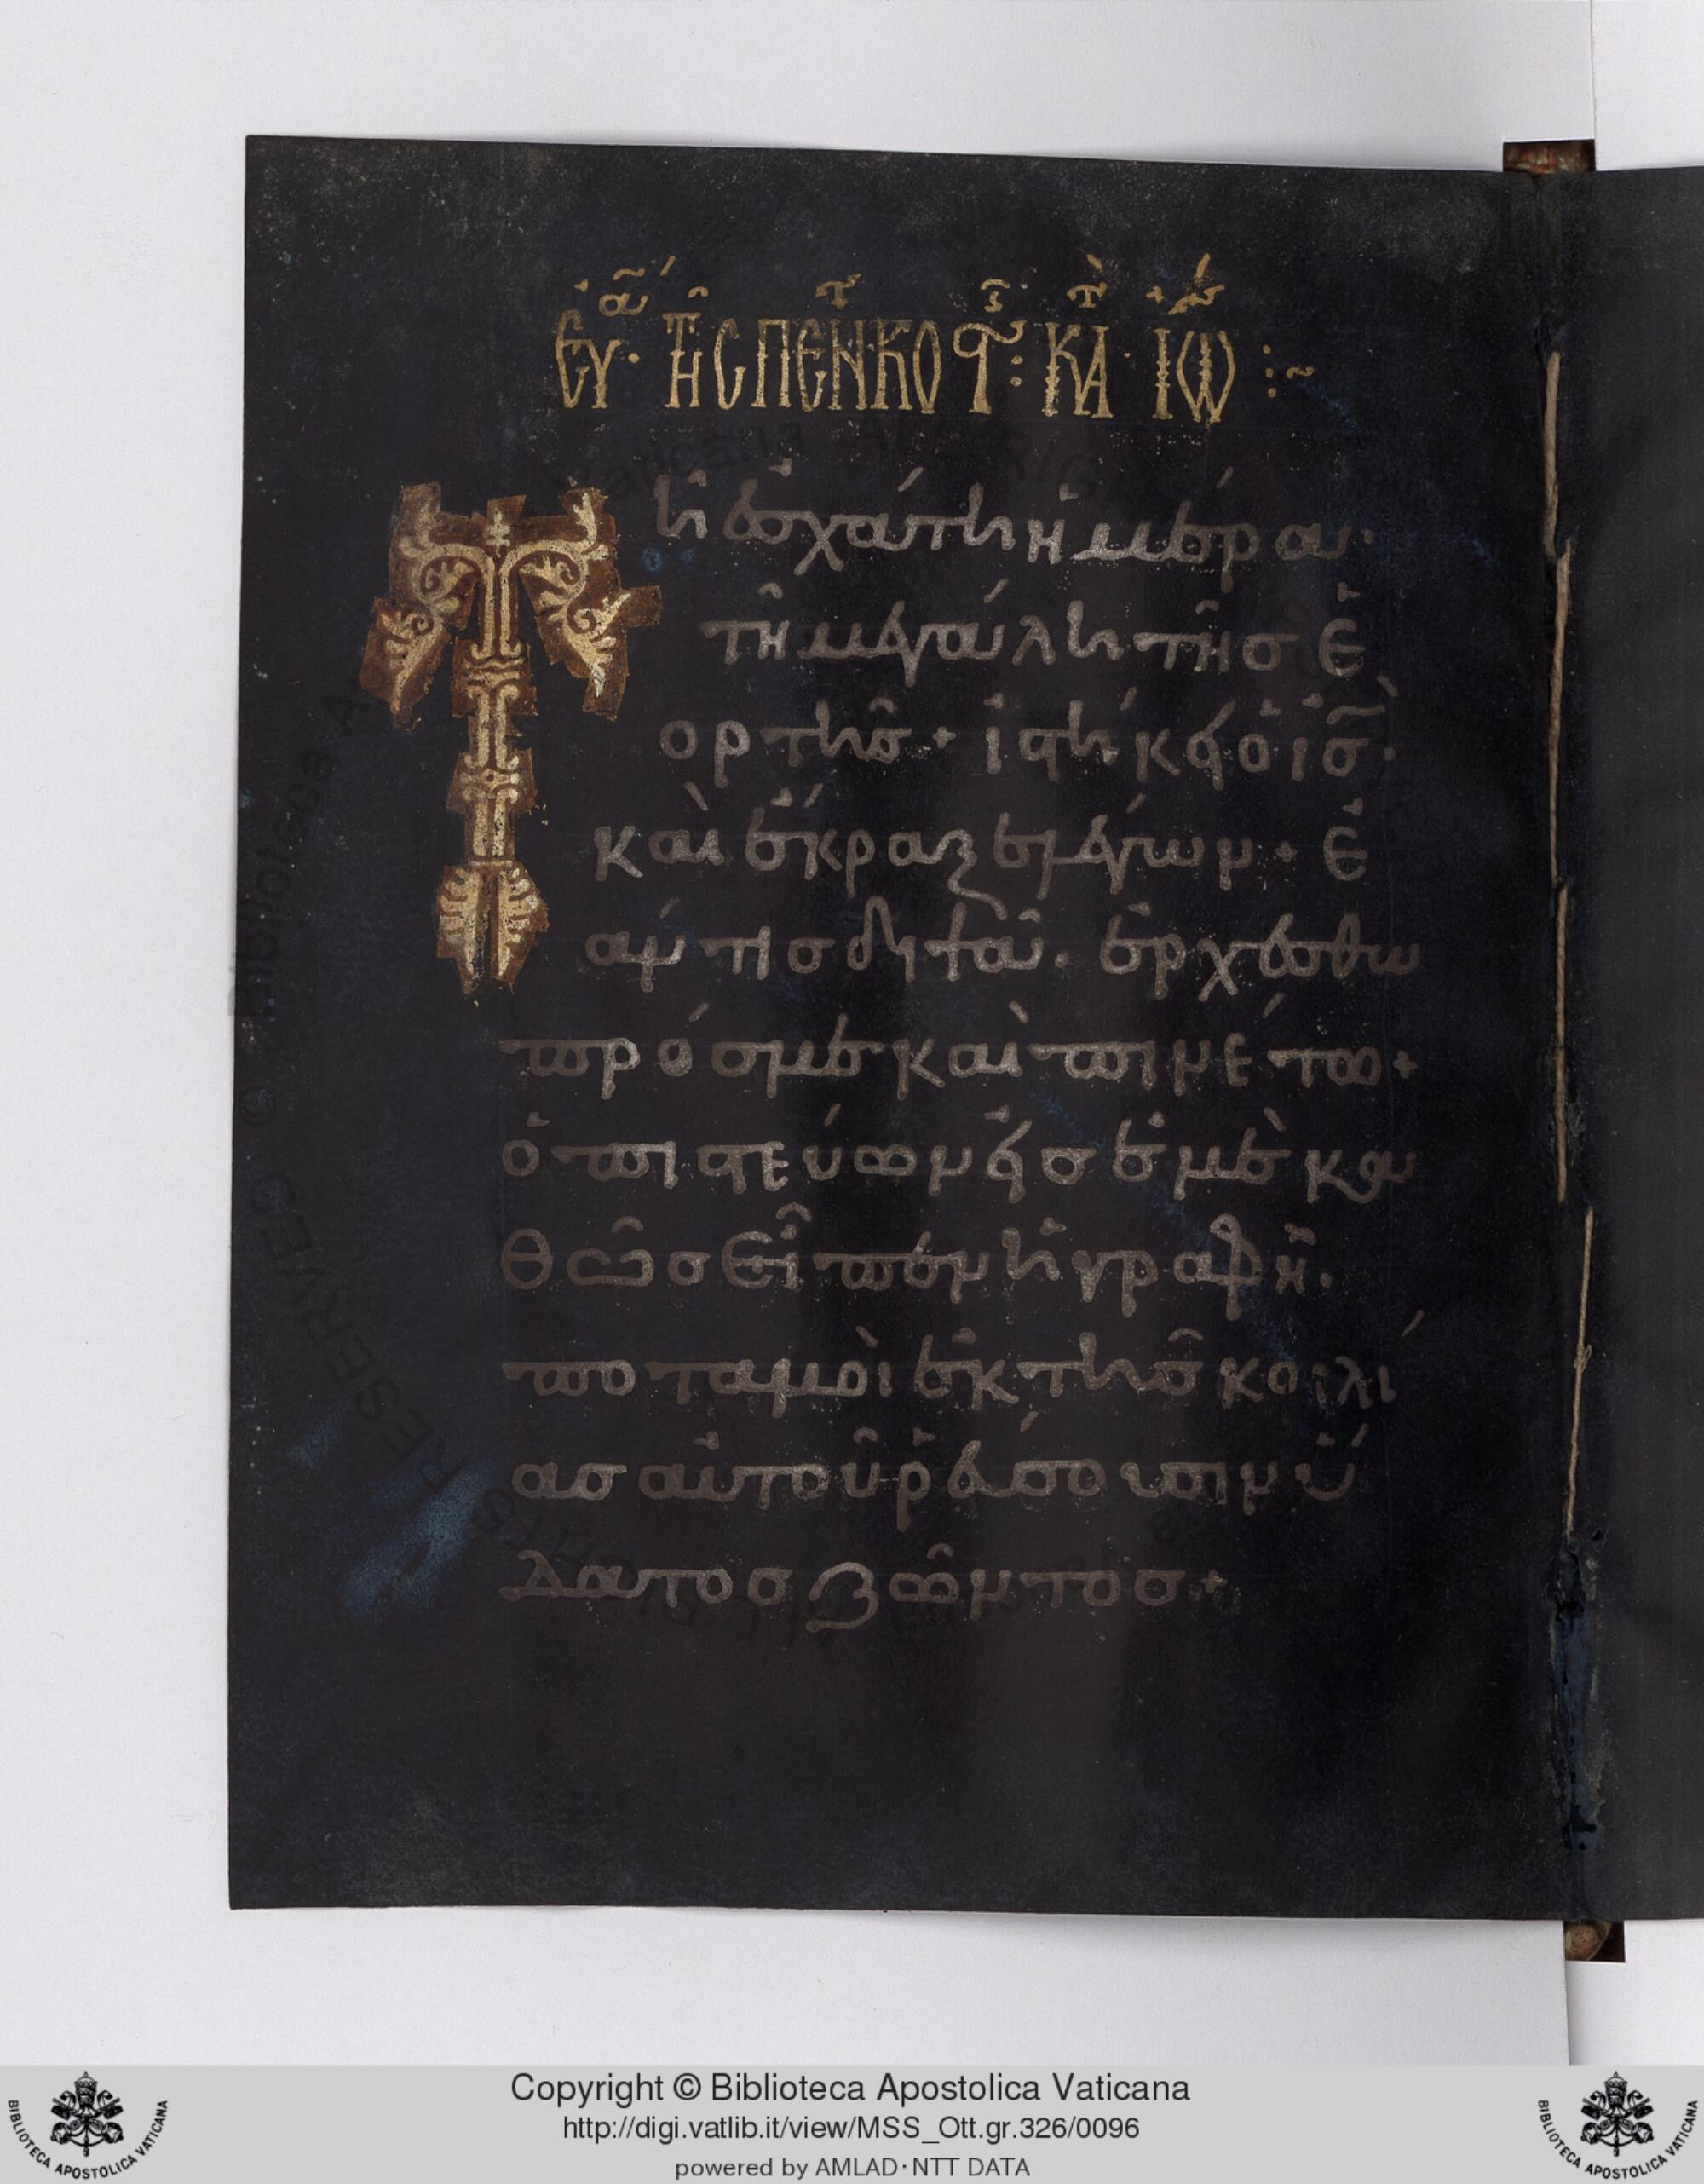 Εὐα τῆς πεντηκοστ: κατ Ἰω :~
Τῆ ἐσχάτη ἡμέρα·
τῆ μεγάλη τῆσ ἑ
ορτῆσ· ἱστήκει ὁ ισ·
καὶ ἔκραζε λέγων· ἐ
άν τισ διψᾶ. ἐρχέσθω
πρόσ με καὶ πινέτω·
ὁ πιστεύων εἰσ ἐμὲ κα
θὼσ εἶπεν ἡ γραφή.
ποταμοὶ ἐκ τῆσ κοιλί
ασ αὐτοῦ ῥεύσουσιν ὕ
δατοσ ζῶντοσ·
Copyright © Biblioteca Apostolica Vaticana
http://digi.vatlib.it/view/MSS_Ott.gr.326/0096
powered by AMLAD·NTT DATA
BIBLIOTECA APOSTOLICA VATICANA
BIBLIOTECA APOSTOLICA VATICANA